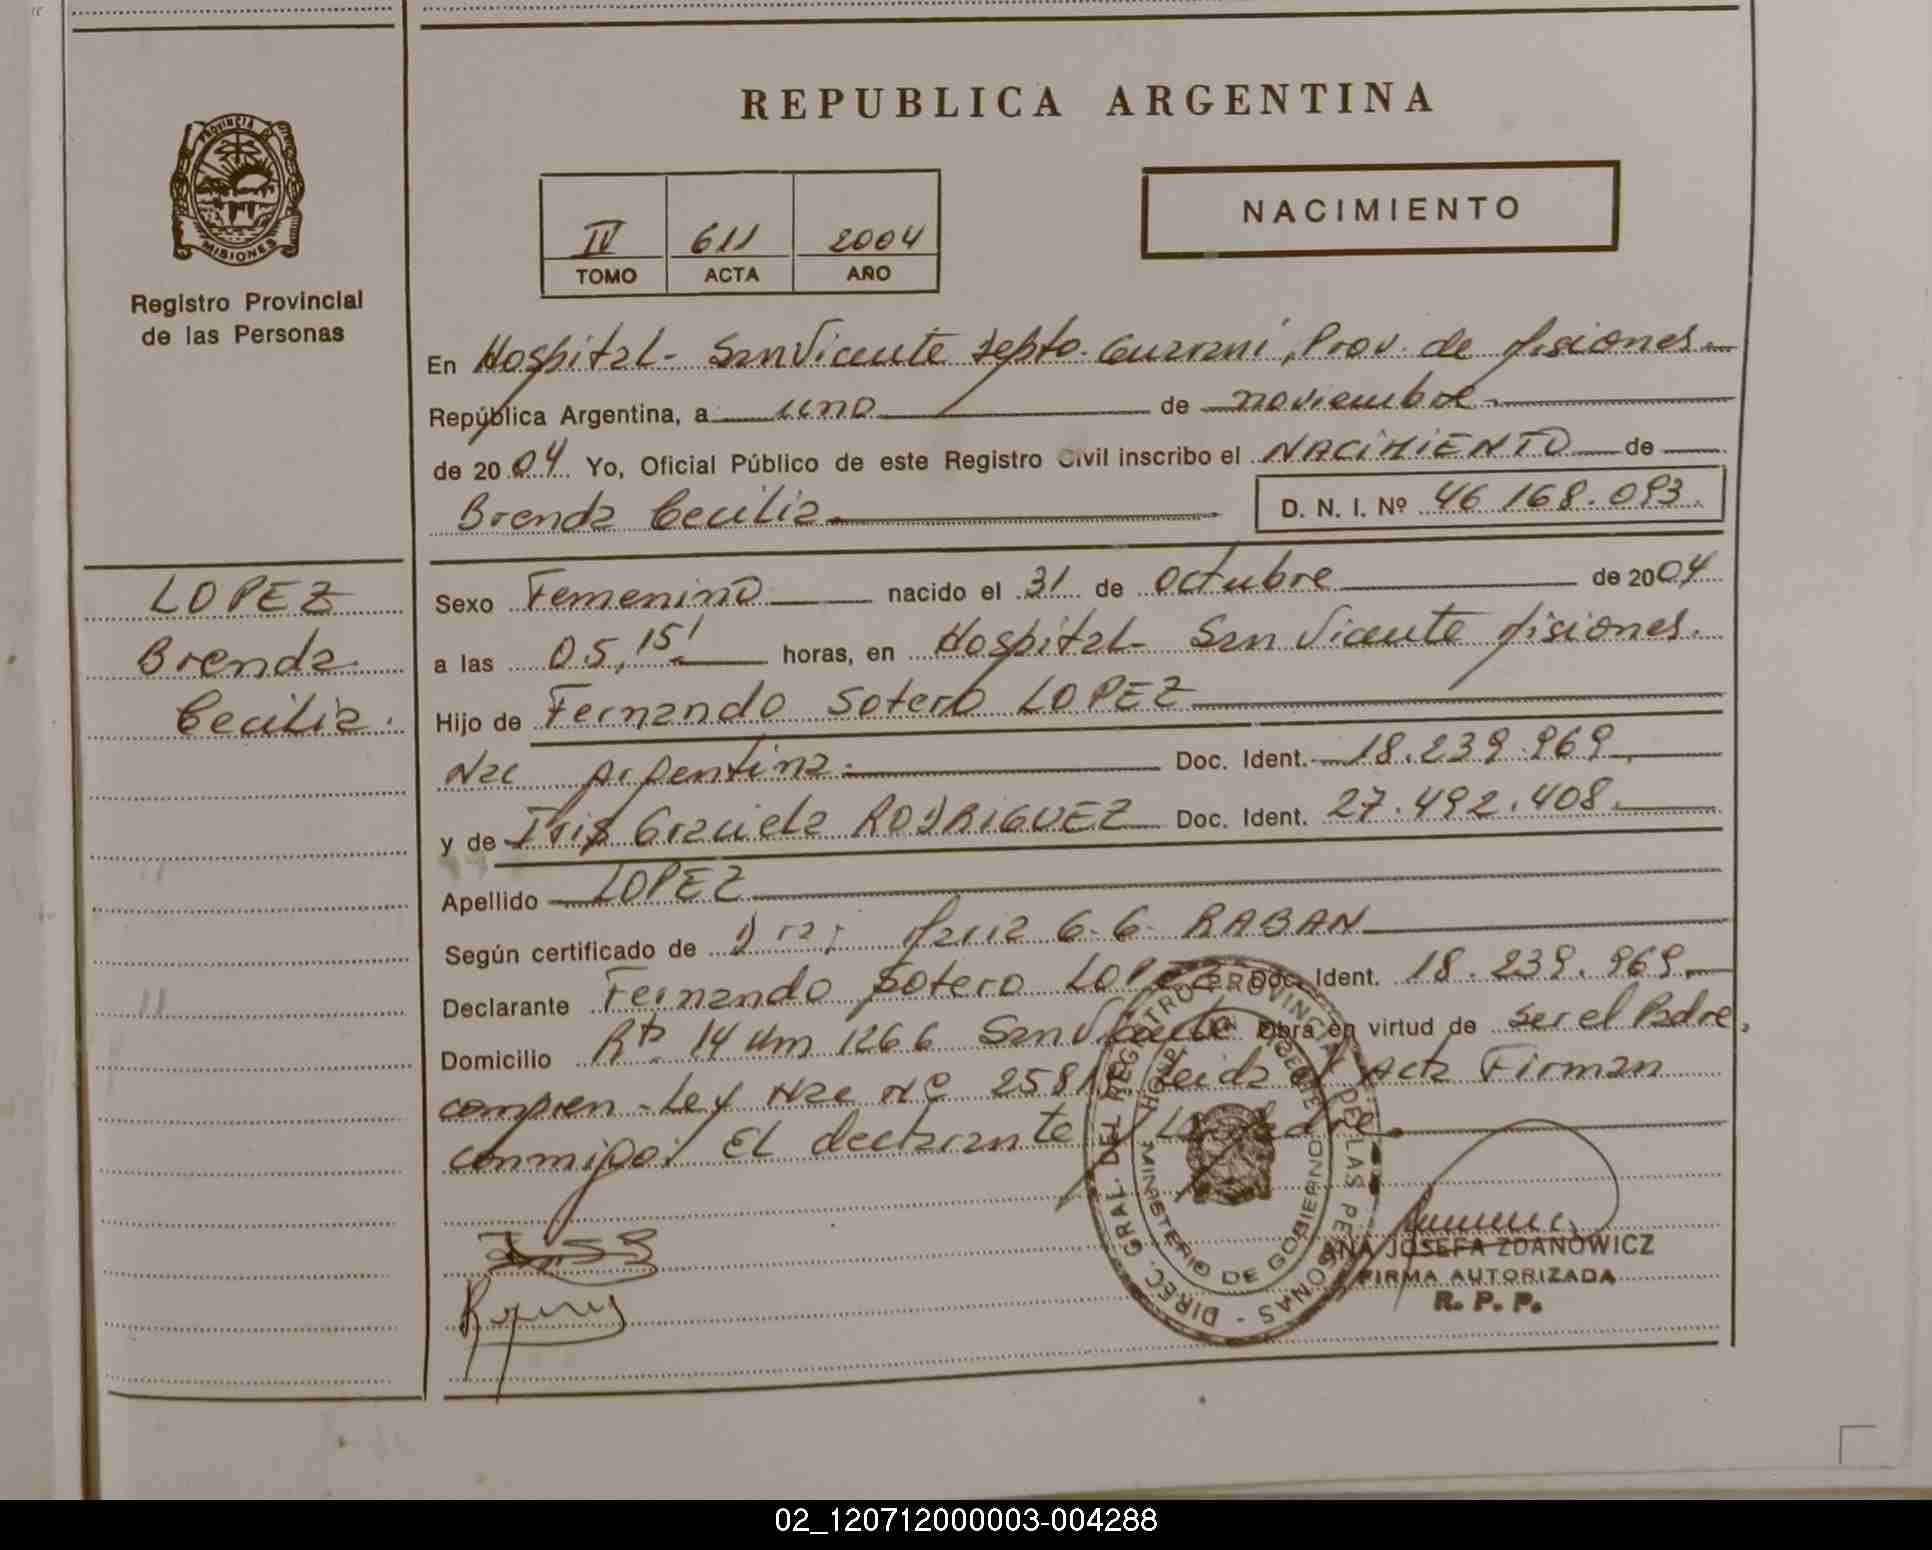 REPUBLICA ARGENTINA
PROVINCIA DE MISIONES
Registro Provincial
de las Personas
IV 611 2004
TOMO ACTA AÑO
NACIMIENTO
En Hospital - San Vicente Depto. Guaraní, Prov. de Misiones.
República Argentina, a uno de noviembre
de 2004 Yo, Oficial Público de este Registro Civil inscribo el NACIMIENTO de
Brenda Cecilia D. N. I. Nº 46 168.093.
LOPEZ
Brenda
Cecilia.
Sexo Femenino nacido el 31 de octubre de 2004
a las 05,15' horas, en Hospital - San Vicente Misiones.
Hijo de Fernando Sotero LOPEZ
Nac Argentina. Doc. Ident. 18.239.969
y de Iris Graciela RODRIGUEZ Doc. Ident. 27.492.408.
Apellido LOPEZ
Según certificado de Dra: Maria G. G. RABAN
Declarante Fernando Sotero LOPEZ Doc. Ident. 18.239.969
Domicilio Rta. 14 Km 1266 San Vicente Obra en virtud de ser el Padre,
compren - Ley Nac Nº Leida el Acta Firman
conmigo: El declarante y La Madre.
DIREC. GRAL. DEL REGISTRO PROVINCIAL DE LAS PERSONAS -
MINISTERIO DE GOBIERNO
ANA JOSEFA ZDANOWICZ
FIRMA AUTORIZADA
R. P. P.
02_120712000003-004288